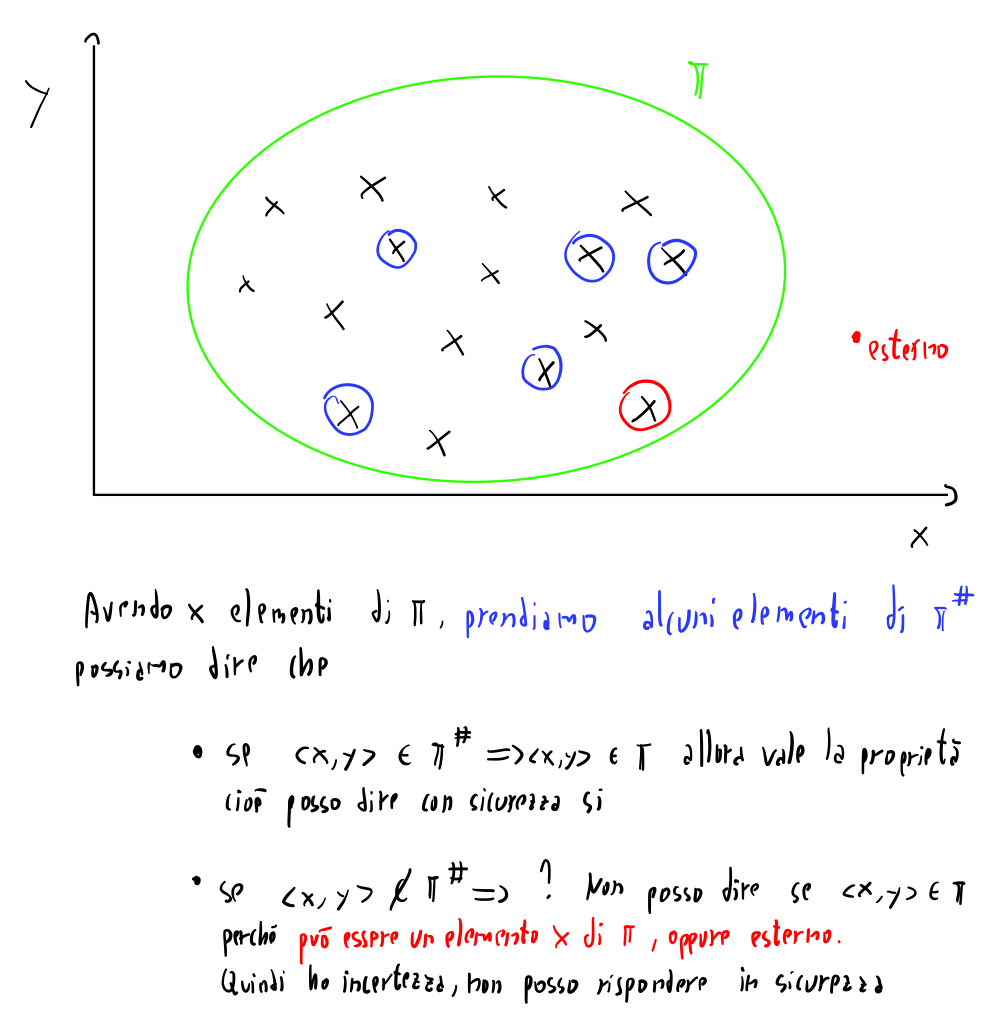 y
π
esterno
x
Avendo x elementi di π, prendiamo alcuni elementi di π#
possiamo dire che
• se <x,y> ∈ π# => <x,y> ∈ π allora vale la proprietà
cioè posso dire con sicurezza si
• se <x,y> ∉ π# => ? Non posso dire se <x,y> ∈ π
perché può essere un elemento x di π, oppure esterno.
Quindi ho incertezza, non posso rispondere in sicurezza